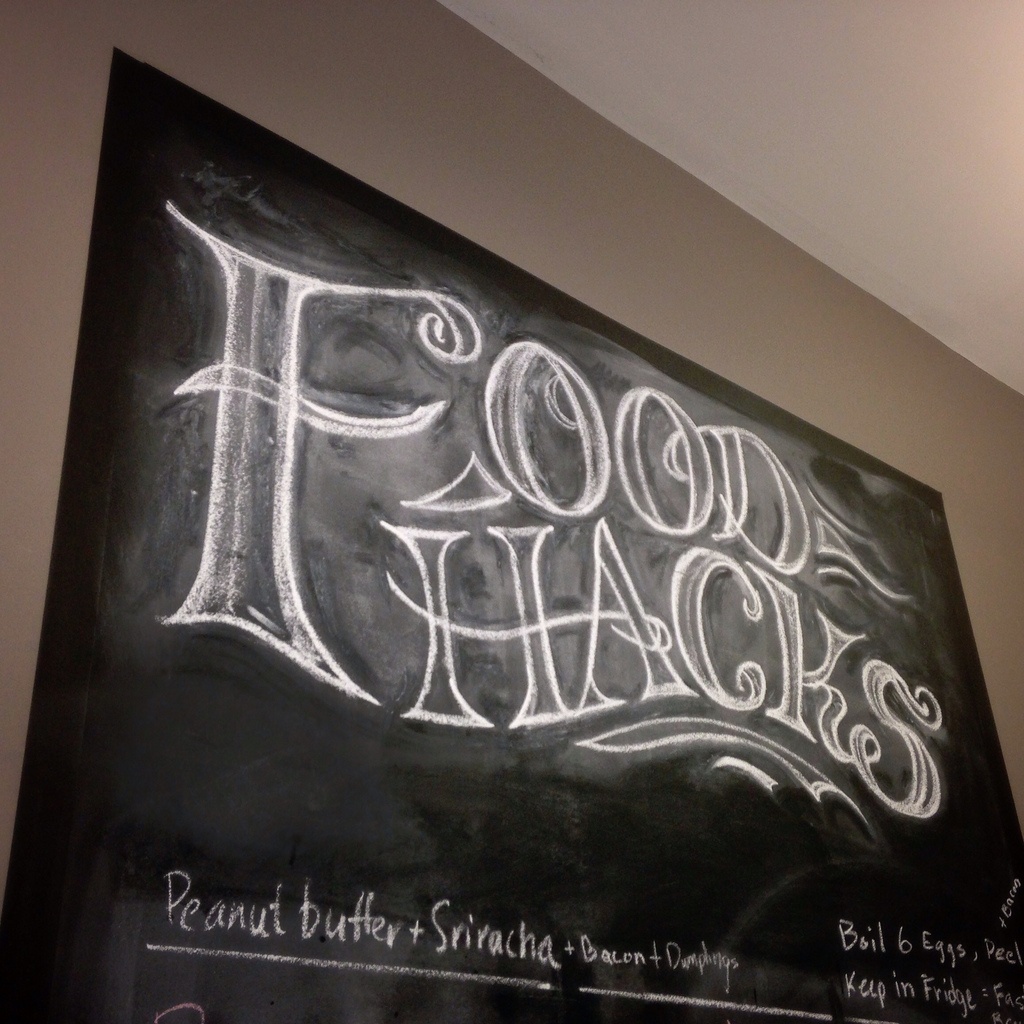 FOOD
HACKS
Peanut butter + Sriracha + Bacon + Dumplings
Boil 6 Eggs, Peel
Keep in Fridge =
+ Bacon